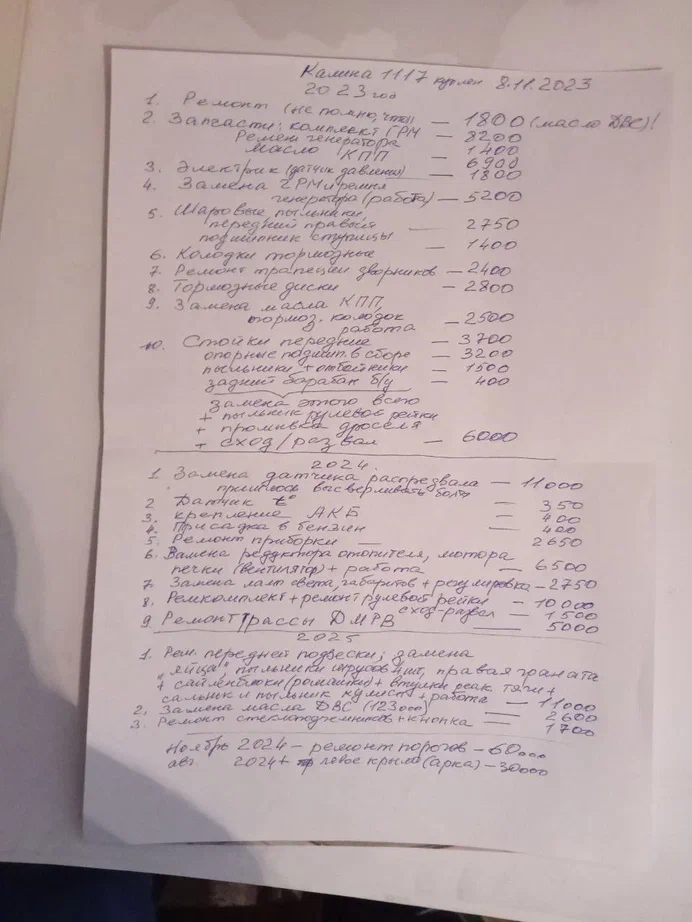 Калина 1117 куплен 8.11.2023
2023 год
1. Ремонт (не помню, что) — 1800 (масло ДВС)!
2. Запчасти: комплект ГРМ — 8200
Ремень генератора — 1400
масло КПП — 6900
3. Электрик (датчик давления) — 1800
4. Замена ГРМ и ремня
генератора (работа) — 5200
5. Шаровые пыльники,
передний правый — 2750
подшипник ступицы
6. Колодки тормозные — 1400
7. Ремонт трапеции дворников — 2400
8. Тормозные диски — 2800
9. Замена масла КПП,
тормоз. колодок — 2500
работа
10. Стойки передние — 3700
опорные подшип. в сборе — 3200
пыльники + отбойники — 1500
задний барабан б/у — 400
замена этого всего
+ пыльник рулевой рейки
+ промывка дроселя
+ сход/развал — 6000
2024.
1 Замена датчика распредвала — 11000
пришлось высверливать болт
2 Датчик t° — 350
3. крепление АКБ — 400
4. Присадка в бензин — 400
5. Ремонт приборки — 2650
6. Замена редуктора отопителя, мотора
печки (вентилятор) + работа — 6500
7. Замена ламп света, габаритов + регулировка — 2750
8. Ремкомплект + ремонт рулевой рейки — 10,000
сход-развал — 1500
9 Ремонт трассы ДМРВ — 5000
2025
1. Рем. передней подвески; замена
"яйца", пыльники 4 шт, правая граната
+ сайлентблоки (ромашки) + втулки реак тяги +
сальник и пыльник + работа — 11000
2. Замена масла ДВС (123000) — 2600
3. Ремонт стеклоподъемников + кнопка — 1700
Ноябрь 2024 — ремонт порогов — 60000
авг. 2024 + левое крыло (арка) — 30000